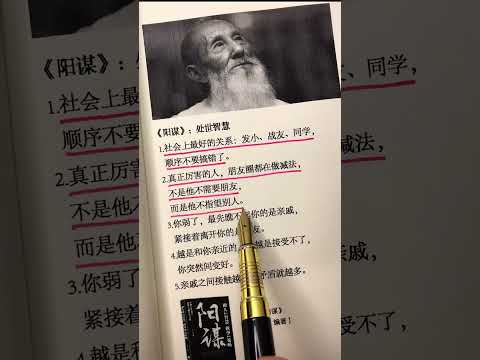 《阳谋》:
1.社会上最
、同学,
顺序不要
2.真正厉害
法,
不是他不
而是他不
3.你弱了,
紧接着
4.越是和
《阳谋》:处世智慧
1.社会上最好的关系:发小、战友、同学,
顺序不要搞错了。
2.真正厉害的人,朋友圈都在做减法,
不是他不需要朋友,
而是他不指望别人。
3.你弱了,最先瞧不你的是亲戚,
紧接着离开你的友。
4.越是和你亲近的越是接受不了,
你突然间变好。
5.亲戚之间接触越矛盾就越多。
阳谋
谋》
编著